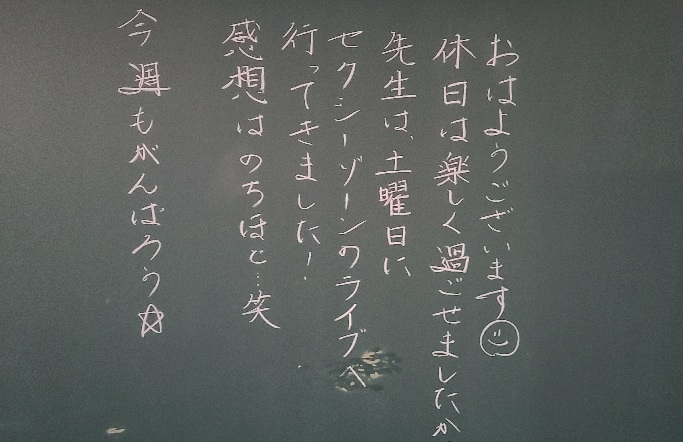 おはようございます☺
休日は楽しく過ごせましたか
先生は、土曜日に
セクシーゾーンのライブへ
行ってきました！
感想はのちほど…笑
今週もがんばろう☆